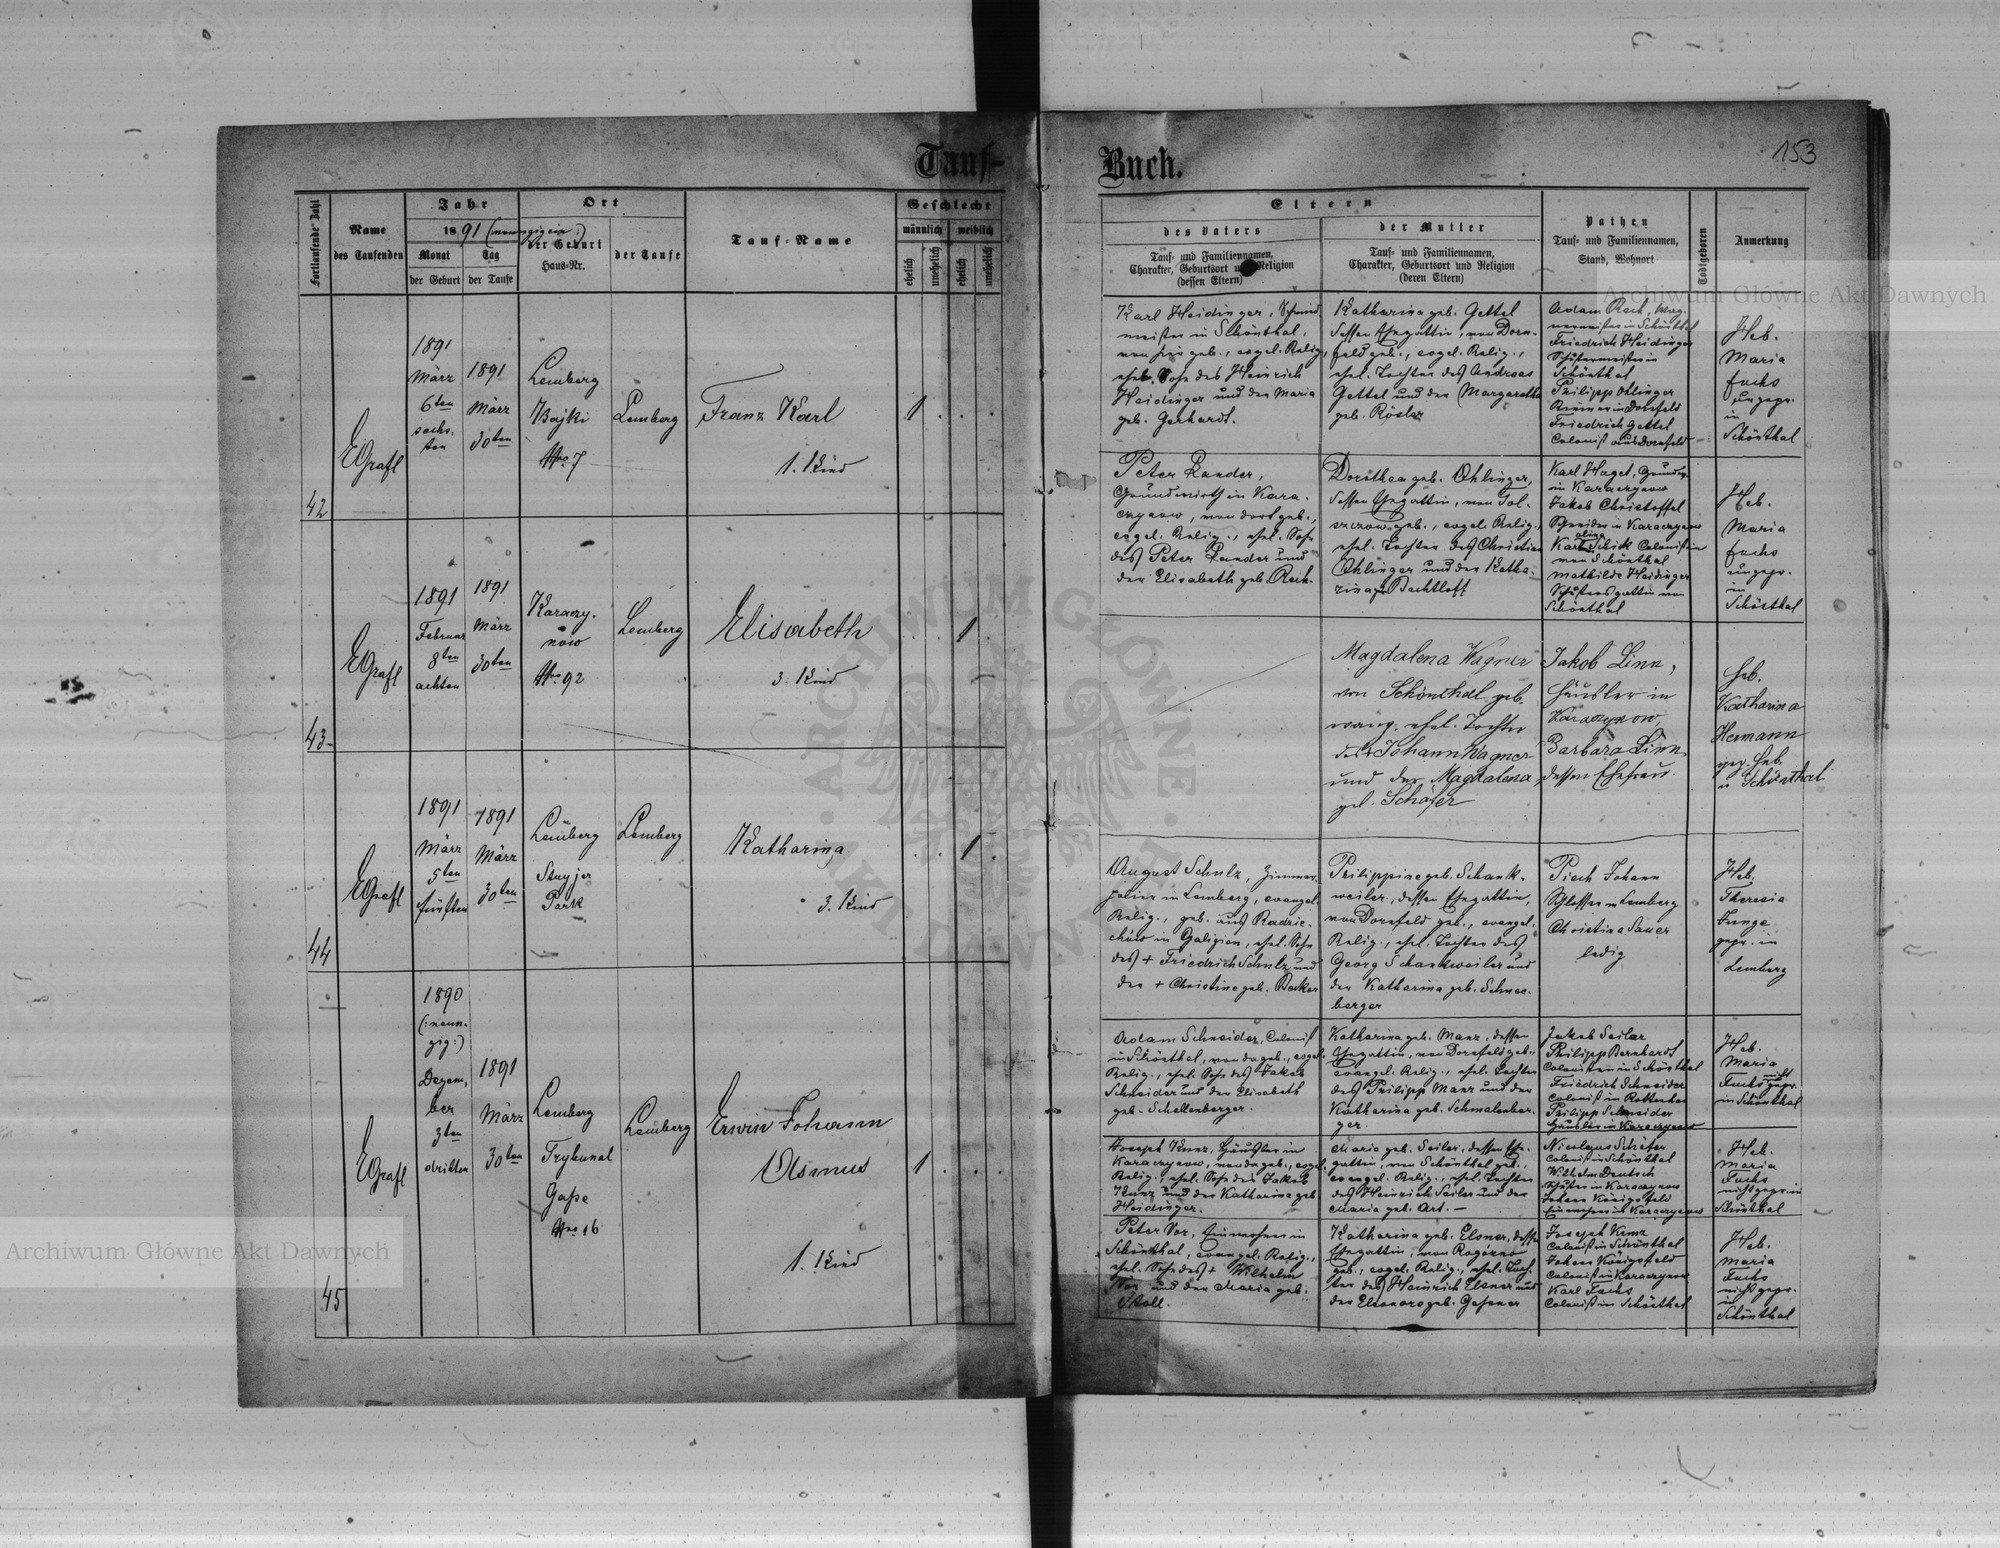 Tauf-
Fortlaufende Zahl
Name
des Taufenden
Jahr
1891 (:neunzigein:)
Monat
der Geburt
Tag
der Taufe
Ort
der Geburt
Haus-Nr.
der Taufe
Tauf-Name
Geschlecht
männlich
weiblich
ehelich
unehelich
ehelich
unehelich
42
EGrafl
1891
März
6ten
sechs-
ten
1891
März
30ten
Lemberg
Bajki
Nro 7
Lemberg
Franz Karl
1. Kind
1
43
EGrafl
1891
Februar
8ten
achten
1891
März
30ten
Karaczy-
now
Nro 92
Lemberg
Elisabeth
3. Kind
1
44
EGrafl
1891
März
5ten
fünften
1891
März
30ten
Lemberg
Stryjer
Park
Lemberg
Katharina
3. Kind
1
45
EGrafl
1890
(:neun-
zig:)
Dezem-
ber
3ten
dritten
1891
März
30ten
Lemberg
Trybunal
Gaße
Nro 16
Lemberg
Erwin Johann
Asmus
1. Kind
1
Buch.
153
Eltern
des Vaters
Tauf- und Familiennamen,
Charakter, Geburtsort und Religion
(dessen Eltern)
der Mutter
Tauf- und Familiennamen,
Charakter, Geburtsort und Religion
(deren Eltern)
Pathen
Tauf- und Familiennamen,
Stand, Wohnort
Todtgeboren
Anmerkung
Karl Heidinger, Schmied-
meister in Schönthal,
von hier geb., evgel. Relig.,
ehel. Sohn des Heinrich
Heidinger und der Maria
geb. Gerhardt.
Katharina geb. Gettel
dessen Ehegattin, von Dorn-
feld geb., evgel. Relig.,
ehel. Tochter des Andreas
Gettel und der Margaretha
geb. Rösler
Adam Rech, Wag-
nermeister in Schönthal
Friedrich Heidinger
Schustermeister in
Schönthal
Philipp Ohlinger
Riemer in Dornfeld
Friedrich Gettel
Colonist aus Dornfeld
Heb.
Maria
Fuchs
ungepr.
in
Schönthal
Peter Lander,
Grundwirth in Kara-
czynow, von dort geb.,
evgel. Relig., ehel. Sohn
des Peter Lander und
der Elisabeth geb. Rech.
Dorothea geb. Ohlinger,
dessen Ehegattin, von Fal-
geb., evgel. Relig.,
ehel. Tochter des Christian
Ohlinger und der Katha-
rina geb. Bechtloff
Karl Huget, Grundw.
in Karaczynow
Jakob Christoffel
Schneider in Karaczynow
Karl Schick Colonist in
von Schönthal
Mathilde Heidinger
Schustersgattin von
Schönthal
Heb.
Maria
Fuchs
ungepr.
in
Schönthal
Magdalena Wagner
von Schönthal geb.
evang. ehel. Tochter
des Johann Wagner
und der Magdalena,
geb. Schäfer
Jakob Linn,
Häusler in
Karaczynow,
Barbara Linn
dessen Ehefrau.
Heb.
Katharina
Hermann
gepr. Heb.
in Schönthal
August Schulz, Zimmer-
in Lemberg, evangel.
Relig., geb. aus Radzie-
chów in Galizien, ehel. Sohn
des + Friedrich Schulz und
der + Christine geb. Becker
Philippine geb. Schank-
weiler, dessen Ehegattin,
von Dornfeld geb., evangel.
Relig., ehel. Tochter des
Georg Schankweiler und
der Katharina geb. Schnee-
berger
Piech Johann
Schlosser in Lemberg
Christina Sauer
ledig
Heb.
Theresia
Junge
gepr. in
Lemberg
Adam Schneider, Colonist
in Schönthal, von da geb., evgel.
Relig., ehel. Sohn des Jakob
Schneider und der Elisabeth
geb. Schellenberger.
Katharina geb. Manz, dessen
Ehegattin, von Dornfeld geb.,
evangel. Relig., ehel. Tochter
des Philipp Manz und der
Katharina geb. Schmalenber-
ger.
Jakob Seiler
Philipp Bernhardt
Colonisten in Schönthal
Friedrich Schneider
Colonist in Rottenhan
Philipp Schneider
Häusler in Karaczynow
Heb.
Maria
Fuchs nicht gepr.
in Schönthal
Joseph Kunz, Häusler in
Karaczynow, von da geb., evgel.
Relig., ehel. Sohn des Jakob
Kunz und der Katharina geb.
Heidinger.
Maria geb. Seiler, dessen Ehe-
gattin, von Schönthal geb.,
evangel. Relig., ehel. Tochter
des Heinrich Seiler und der
Maria geb. Art. —
Nicolaus Schäfer
Colonist in Schönthal
Wilhelm Deutsch
Schuster in Karaczynow
Johann Königsfeld
Einwohner in Karaczynow
Heb.
Maria
Fuchs
nicht gepr. in
Schönthal
Peter Vor, Einwohner in
Schönthal, evangel. Relig.,
ehel. Sohn des + Wilhelm
Vor und der Maria geb.
Stoll.
Katharina geb. Elsner, dessen
Ehegattin, von Rogózno
geb., evgel. Relig., ehel. Toch-
ter des Heinrich Elsner und
der Eleonore geb. Geßner
Joseph Kunz
Colonist in Schönthal
Johann Königsfeld
Colonist in Karaczynow
Karl Fuchs
Colonist in Schönthal
Heb.
Maria
Fuchs
nicht gepr.
in
Schönthal
Archiwum Główne Akt Dawnych
Archiwum Główne Akt Dawnych
ARCHIWUM GŁÓWNE AKT DAWNYCH